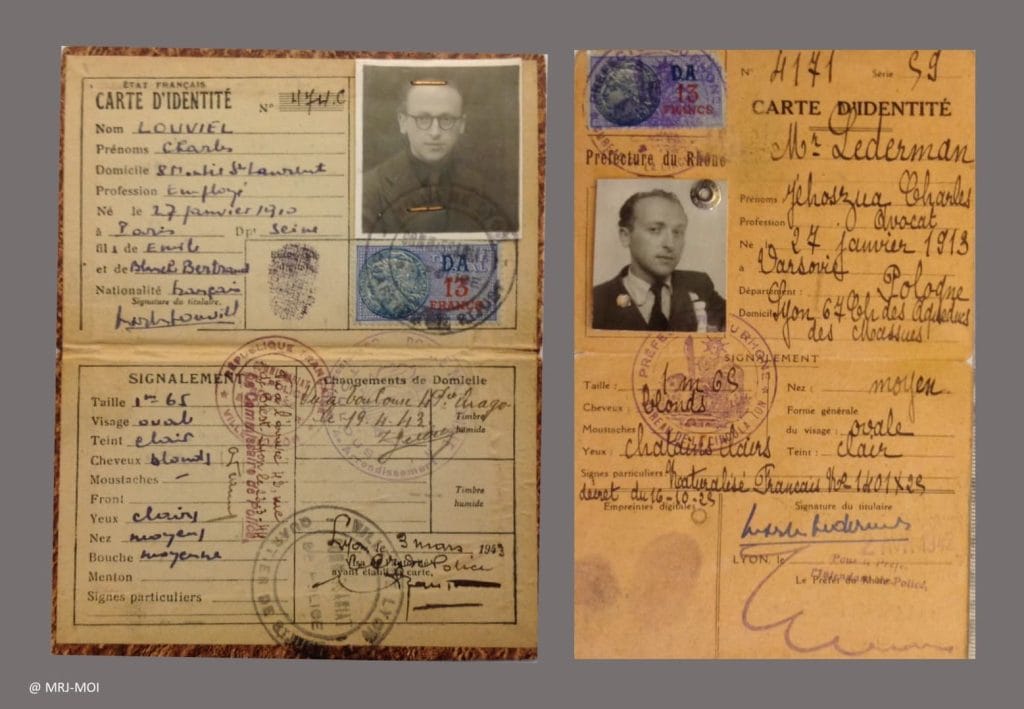 ÉTAT FRANÇAIS
CARTE D'IDENTITÉ
N° 474.C
Nom LOUVIEL
Prénoms Charles
Domicile 8 St Laurent
Profession Employé
Né le 27 janvier 1910
à Paris Dpt Seine
fils de Emile
et de Blanch Bertrand
Nationalité française
Signature du titulaire,
DA
13
FRANCS
SIGNALEMENT
Taille 1m 65
Visage oval
Teint clair
Cheveux blonds
Moustaches —
Front
Yeux clairs
Nez moyen
Bouche moyenne
Menton
Signes particuliers
Changements de Domicile
Vu à Toulouse
le 19.4.43
Timbre
humide
Timbre
humide
Lyon le 3 mars 1943
Police
ayant établi la carte,
RÉPUBLIQUE FRAN
Commissaire de Police
Arrondissement
LYON
POLICE
DA
13
FRANCS
N° 4171 Série 59
CARTE D'IDENTITÉ
Préfecture du Rhône
Mr Lederman
Prénoms Jehoszua Charles
Profession Avocat
Né le 27 janvier 1913
à Varsovie
Département : Pologne
Domicile Lyon 67 Ch des Aqueducs
des Massues
SIGNALEMENT
Taille : 1m 65
Cheveux : blonds
Moustaches
Yeux : chatains clairs
Signes particuliers Naturalisé Francais No 1401X25
décret du 16-10-25
Empreintes digitales
Nez : moyen
Forme générale
du visage : ovale
Teint : clair
Signature du titulaire
LYON, le
Le Préfet du Rhône
Pour le Préfet,
l'Intendant de Police,
@ MRJ-MOI